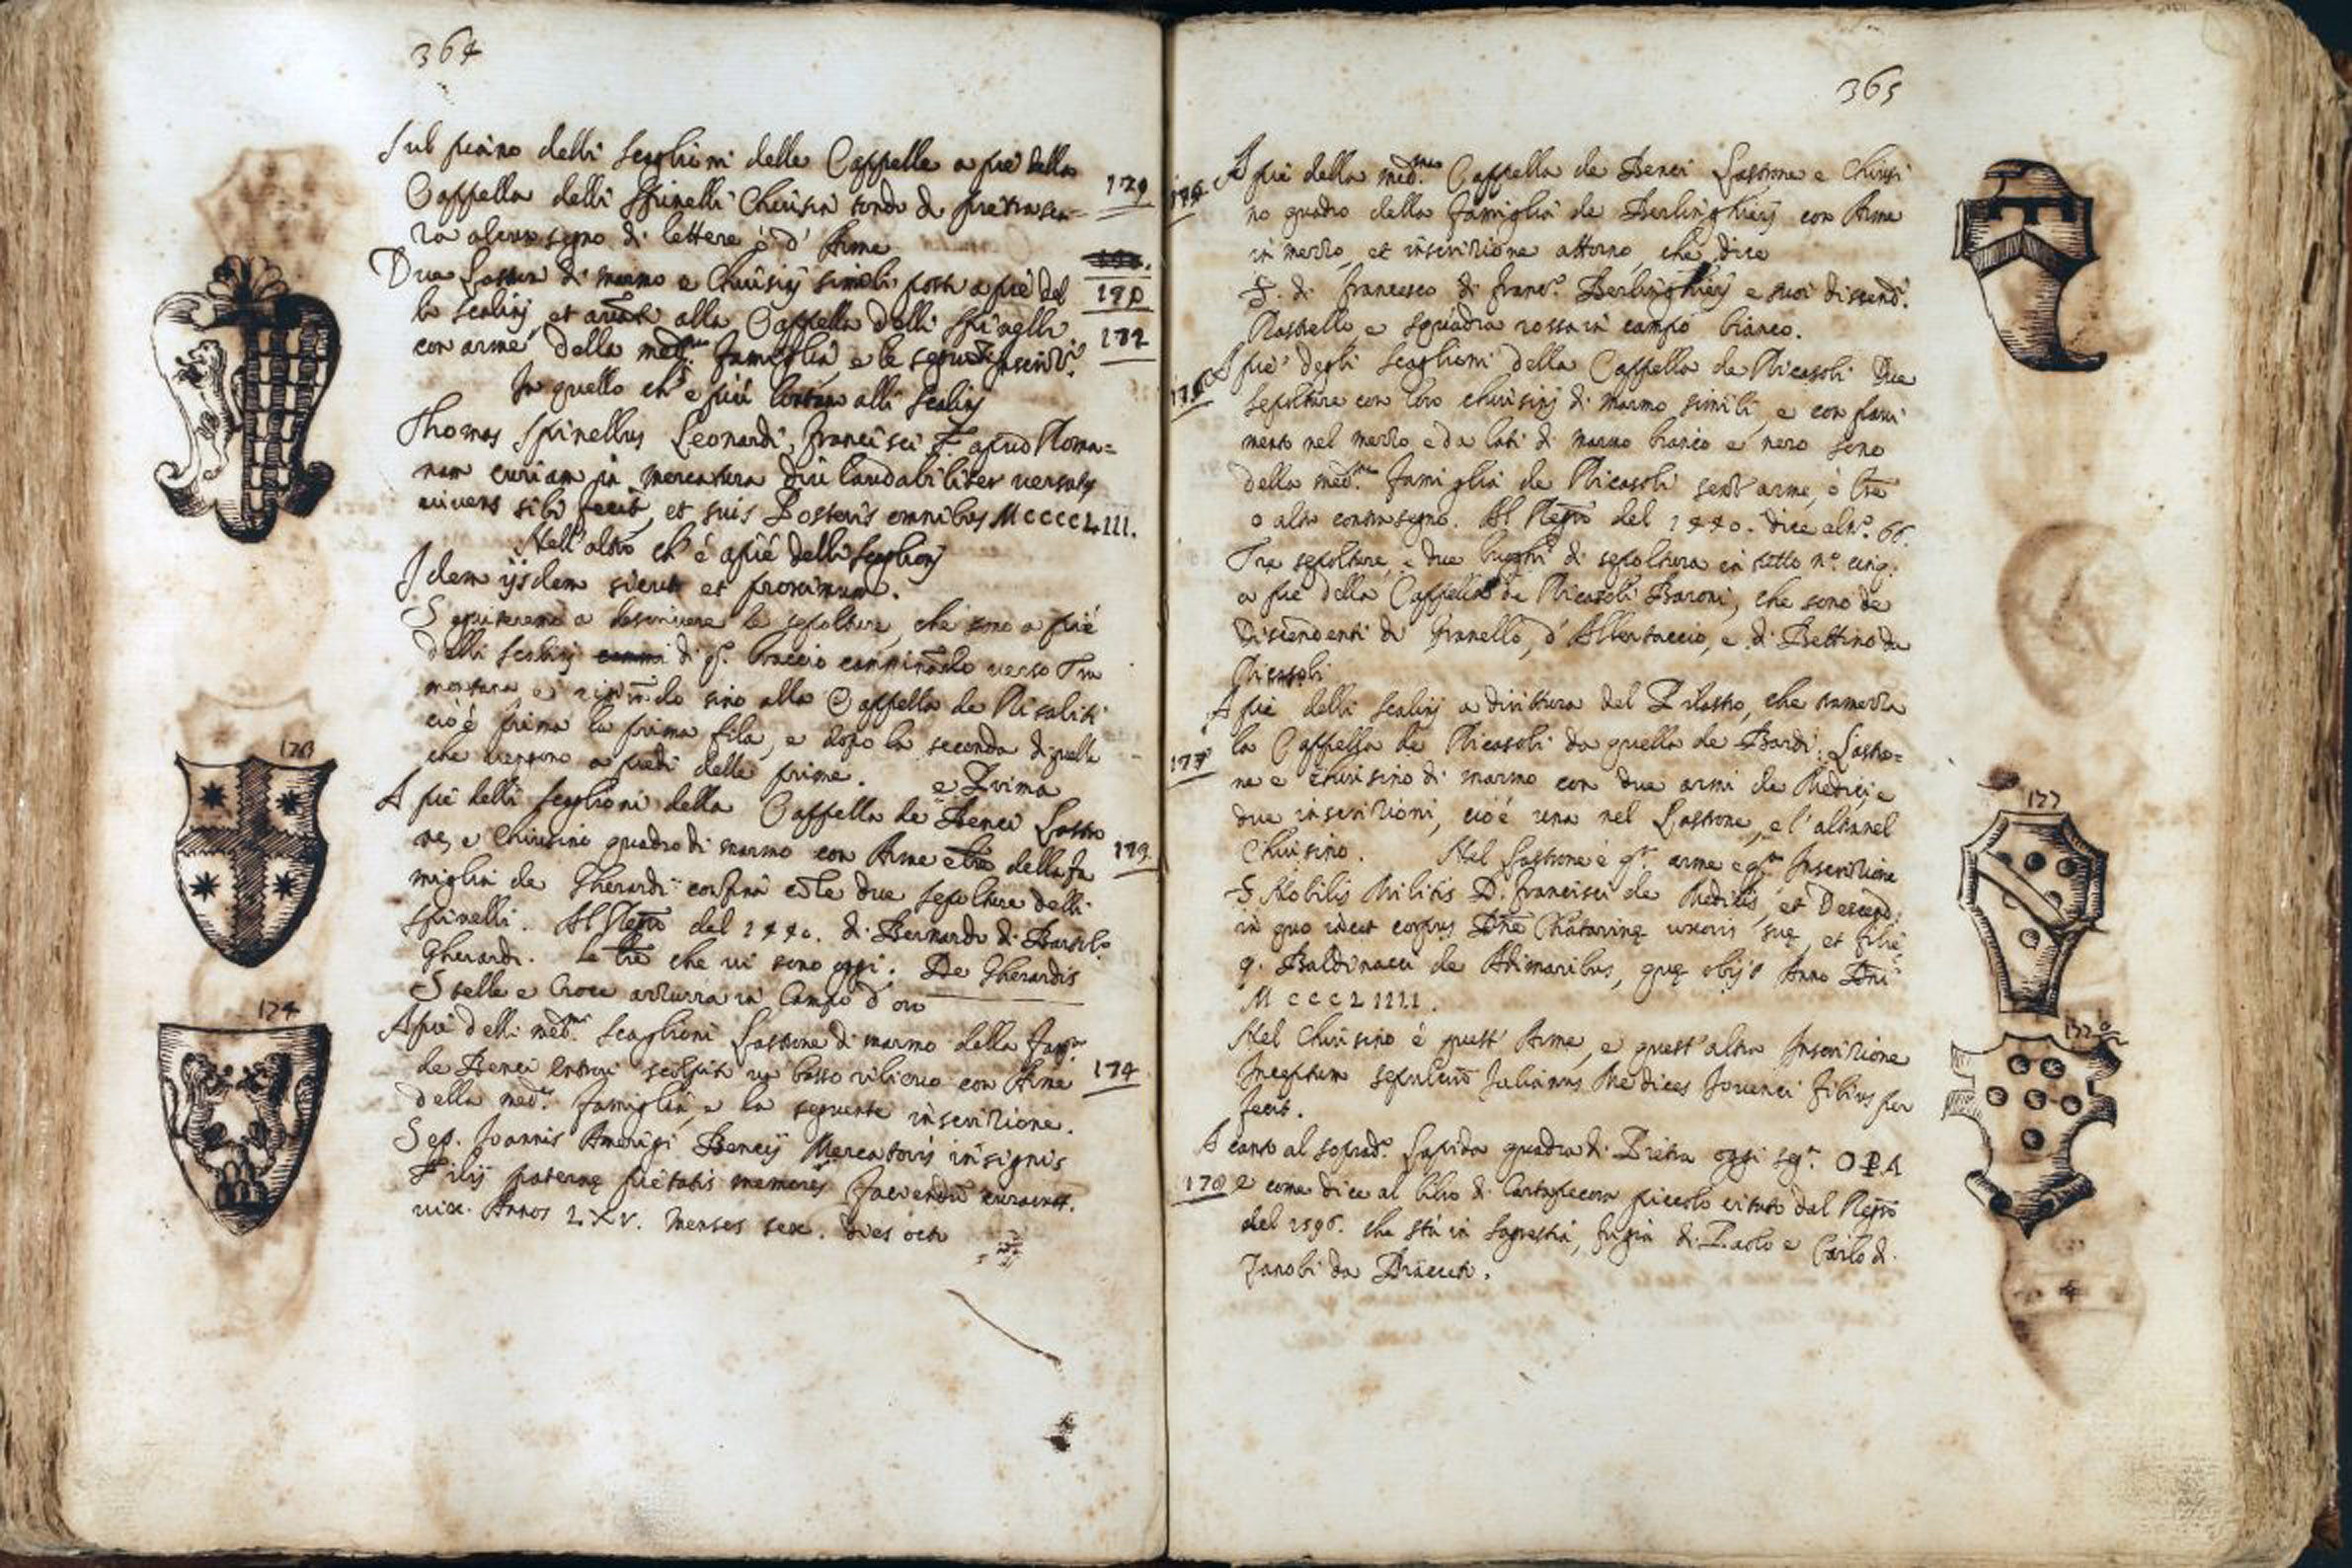 364
Sul piano delli scaglioni delle Cappelle a piè della
Cappella delli Spinelli Chiusin tondo di pietra sen=
za alcun segno di lettere ò d' Arme
Due Lastron di marmo e Chiusinj simili posti a piè del
le scalinj, et alla Cappella delli Spinelli
con arme della med.ma famiglia e le inscriz.
In quello ch' e più lontan alli scalinj
Thomas Spinellus Leonardi, Francisci F. apud Roma=
nam curiam in mercatura diu laudabiliter versatus
vivens sibi fecit, et suis Posteris omnibus MCCCCLIII.
Nell' altro ch' é apié delli scaglionj
Idem ijsdem sicut et proximum.
Seguiteremo a descrivere le sepolture, che sono a pié
delli scalinj di q.o braccio camminado verso Tra
montana e sino alla Cappella de Risaliti
cio é prima la prima fila, e dopo la seconda di quelle
che vengono a piedi delle prime. e Prima
A piè delli scaglioni della Cappella de Benci Lastro
ne, e Chiusino quadro di marmo con Arme e lre della fa
miglia de Gherardi confina có le due sepolture delli
Spinelli. Al Regro del 1440. di Bernardo di Bartol.o
Gherardi. Le lre che vi sono oggi. De Gherardis
Stelle e Croce azzurra in Campo d'oro
Apié delli med.mi scaglioni Lastrone di marmo della fam.a
de Benci scolpito in basso rilievo con Arme
della med.a famiglia, e la seguente inscrizione.
Sep. Joannis Amerigi Bencij Mercatoris insignis
Filij paternę pietatis memores faciendũ curavert.
vix. Annos LXV. menses sex. dies octo
179
180
172
179
174
173
174
365
A piè della med.ma Cappella de Benci Lastrone e Chiusi
no quadro della famiglia de Berlinghierj con Arme
in mezzo, et inscrizione attorno, che dice
S. di Francesco di Franc.o Berlinghierj e suoi discend.
Rastrello e squadra rossa in campo bianco.
A piè degli scaglioni della Cappella de Ricasoli Due
sepolture con loro chiusinj di marmo simili, e con pavi
mento nel mezzo e da lati di marmo bianco e nero sono
della med.ma famiglia de Ricasoli senz' arme, ò lre
o altro contrasegno. Al Regro del 1440. dice al n.o 66.
Tre sepolture, e due luoghi di sepoltura in tutto n.o cinq.
a piè della Cappella de Ricasoli Baroni, che sono de
Discendenti di Granello, d' Albertaccio, e di Bettino da
Ricasoli
A piè delli scalinj a dirittura del Pilastro, che tramezza
la Cappella de Ricasoli da quella de Bardi: Lastro=
ne e chiusino di marmo con due armi de Medicj e
due inscrizioni, cioé una nel Lastrone, e l'altra nel
Chiusino. Nel Lastrone é q.ta arme e q.ta Inscrizione
S. Nobilis Militis D. Francisci de Medicis, et Descend:
in quo iacet corpus Dñe Chatarinę uxoris suę, et filię
q. Baldinacci de Adimaribus, quę obijt Anno Dñi
MCCCLIIII.
Nel Chiusino é quest' Arme, e quest' altra Inscrizione
Inceptum sepulcrũ Julianus Medices Jovenci Filius per
fecit.
A canto al soprad.o Lapida quadra di Pietra oggi seg.a OPA
e come dice al libro di Cartapecora piccolo citato dal Regro
del 1596. che stà in sagrestia, fu già di Paolo e Carlo di
Zanobi da
177
178
177